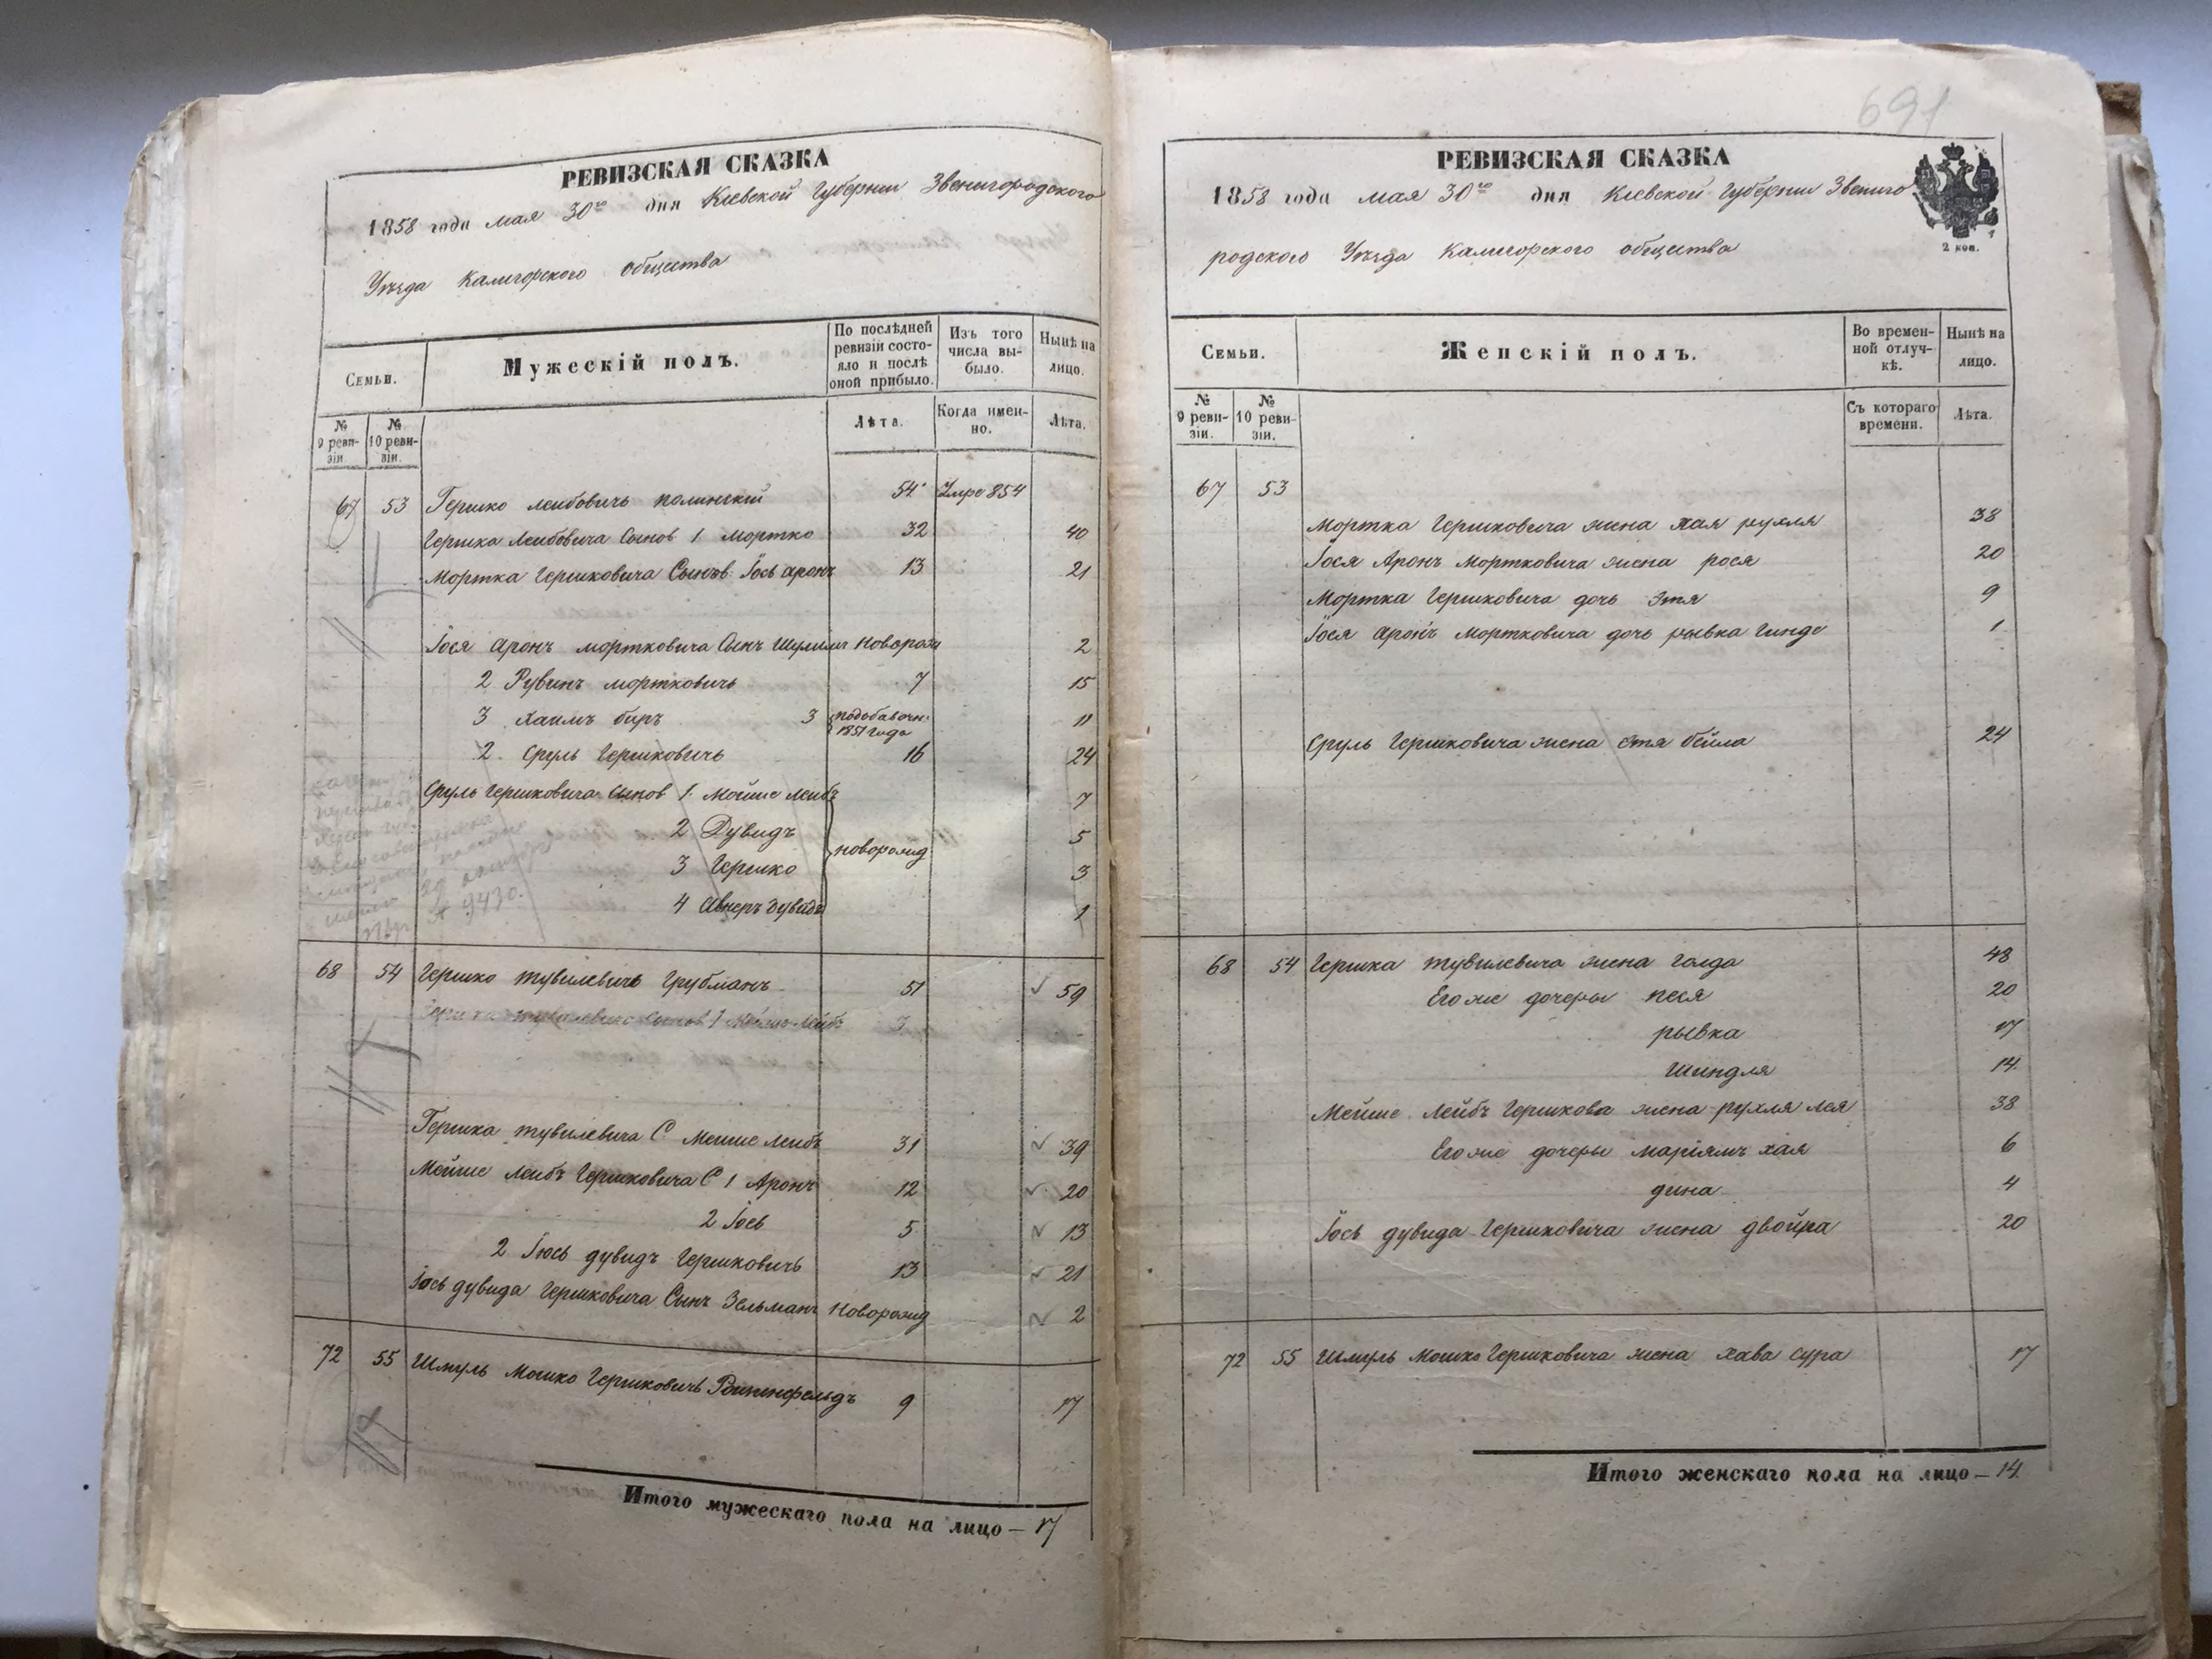 РЕВИЗСКАЯ СКАЗКА
1858 года мая 30го дня Киевской Губернии Звенигородского
Уѣзда Калигорского общества
Семьи.
Мужескій полъ.
По послѣдней ревизіи состояло и послѣ оной прибыло.
Изъ того числа выбыло.
Нынѣ на лицо.
№ 9 ревизіи.
№ 10 ревизіи.
Лѣта.
Когда именно.
Лѣта.
67 53 Гершко Леибовичь Полинскій 54 Умре 854
Гершка Леибовича Сынов 1 Мортко 32 40
Мортка Гершковича Сынов Іось Аронъ 13 21
Іося Аронъ Мортковича Сынъ Шулимъ Новорожд 2
2 Рувинъ Мортковичь 7 15
3 Хаимъ биръ 3 подобавочн: 1851 года 11
2. Сруль Гершковичь 16 24
Сруль Гершковича Сынов 1. Мойше Леибъ 7
2 Дувидъ 5
новорожд
3 Гершко 3
4 Авнеръ Дувидъ 1
№ 9430.
68 54 Гершко Тувилевичь Грубманъ 51 59
Гершка Тувилевича Сынов 1 Мойше Лейбъ 3
Гершка Тувилевича С. Меише Леибъ 31 39
Мейше Леибъ Гершковича С 1 Аронъ 12 20
2 Іось 5 13
2 Іюсь Дувидъ Гершковичь 13 21
Іось Дувида Гершковича Сынъ Зельманъ Новорожд 2
72 55 Шмуль Мошко Гершковичь 9 17
Итого мужескаго пола на лицо — 17
691
РЕВИЗСКАЯ СКАЗКА
1858 года мая 30го дня Киевской Губернии Звениго
родского Уѣзда Калигорского общества
2 коп.
Семьи.
Женскій полъ.
Во временной отлучкѣ.
Нынѣ на лицо.
№ 9 ревизіи.
№ 10 ревизіи.
Съ котораго времени.
Лѣта.
67 53
Мортка Гершковича жена Хая Рухля 38
Іося Аронъ Мортковича жена Рося 20
Мортка Гершковича дочь Этя 9
Іося Аронъ Мортковича дочь Рывка Гинде 1
Сруль Гершковича жена Этя Бейла 24
68 54 Гершка Тувилевича жена Голда 48
Его же дочеры Песя 20
Рывка 17
Шиндля 14.
Мейше Лейбъ Гершкова жена Рухля Лея 38
Его же дочеры Маріямъ Хая 6
Дина 4
Іось Дувида Гершковича жена Двойра 20
72 55 Шмуль Мошко Гершковича жена Хава Сура 17
Итого женскаго пола на лицо — 14.